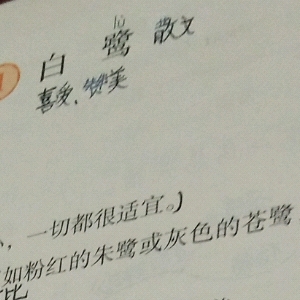 lù
1 白 鹭 散文
喜爱、赞美
，一切都很适宜。)
如粉红的朱鹭或灰色的苍鹭
比